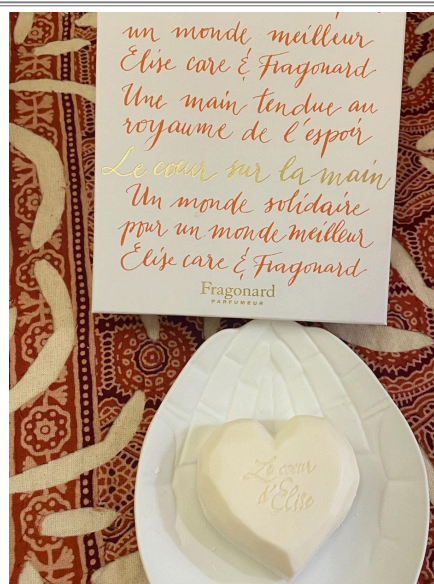 un monde meilleur
Elise care & Fragonard
Une main tendue au
royaume de l'espoir
Le coeur sur la main
Un monde solidaire
pour un monde meilleur
Elise care & Fragonard
Fragonard
PARFUMEUR
Le coeur
d'Elise